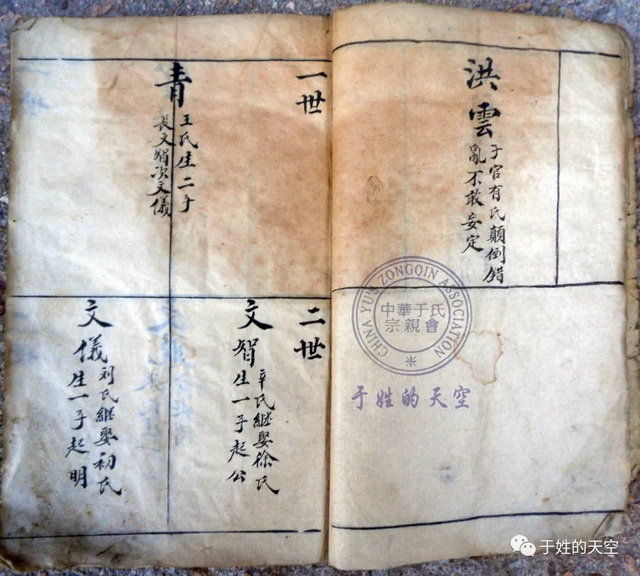 洪雲
子官有氏顛倒錯
亂不敢妄定
一世
青
王氏生二子
長文智次文儀
二世
文智
辛氏繼娶徐氏
生一子起公
文儀
刘氏繼娶初氏
生一子起明
CHINA YU'S ZONGQIN ASSOCIATION
中華于氏
宗親會
于姓的天空
于姓的天空